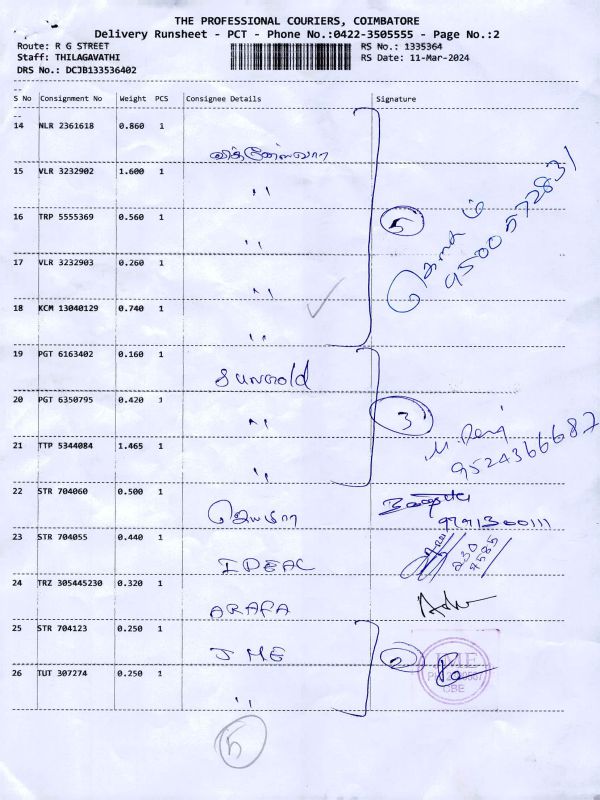 THE PROFESSIONAL COURIERS, COIMBATORE
Delivery Runsheet - PCT - Phone No.:0422-3505555 - Page No.:2
Route: R G STREET RS No.: 1335364
Staff: THILAGAVATHI RS Date: 11-Mar-2024
DRS No.: DCJB133536402
S No Consignment No Weight PCS Consignee Details Signature
14 NLR 2361618 0.860 1
15 VLR 3232902 1.600 1 "
16 TRP 5555369 0.560 1 "
5
17 VLR 3232903 0.260 1 "
18 KCM 13040129 0.740 1 "
9500572831
19 PGT 6163402 0.160 1 Sungold
20 PGT 6350795 0.420 1 "
3
21 TTP 5344084 1.465 1 "
9524366687
22 STR 704060 0.500 1
23 STR 704055 0.440 1 IDEAL
24 TRZ 305445230 0.320 1 ARAFA
25 STR 704123 0.250 1 JME
2 JME
26 TUT 307274 0.250 1 "
CBE
5